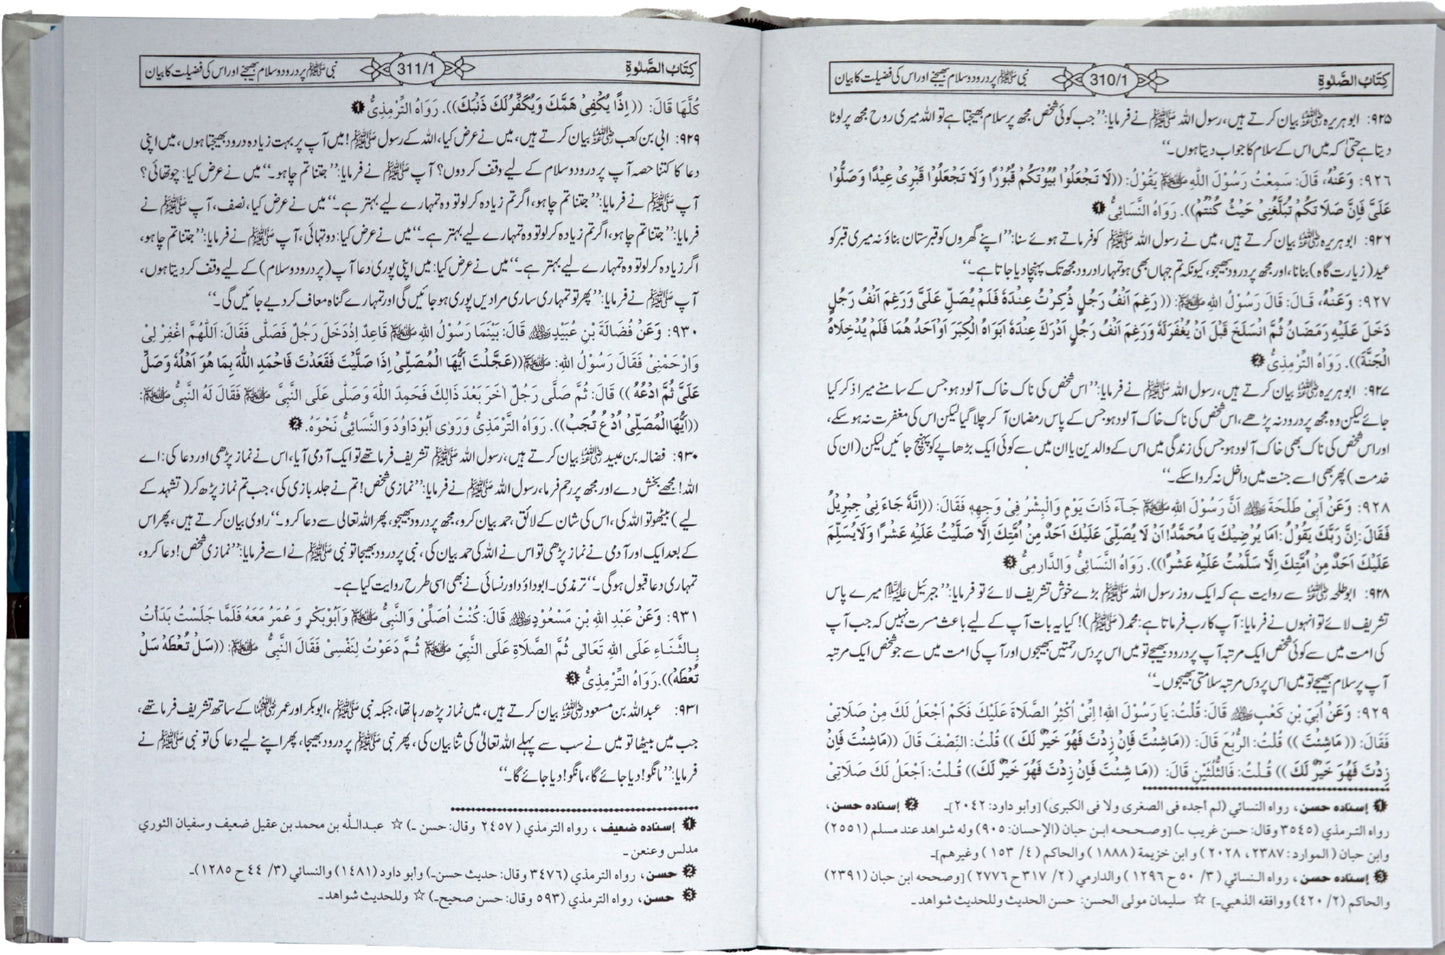 كِتَابُ الصَّلوٰةِ 310/1 نبی ﷺ پر درود و سلام بھیجنے اور اس کی فضیلت کا بیان
۹۲۵: ابو ہریرہ ؓ بیان کرتے ہیں، رسول اللہ ﷺ نے فرمایا: ’’جب کوئی شخص مجھ پر سلام بھیجتا ہے تو اللہ میری روح مجھ پر لوٹا
دیتا ہے حتیٰ کہ میں اس کے سلام کا جواب دیتا ہوں۔‘‘
۹۲٦: وَعَنْهُ، قَالَ: سَمِعْتُ رَسُوْلَ اللهِ ﷺ يَقُوْلُ: ((لَا تَجْعَلُوْا بُيُوْتَكُمْ قُبُوْرًا وَلَا تَجْعَلُوْا قَبْرِىْ عِيْدًا وَصَلُّوْا
عَلَىَّ فَإِنَّ صَلَاتَكُمْ تُبَلَّغُنِىْ حَيْثُ كُنْتُمْ)). رَوَاهُ النَّسَائِىُّ ❶
۹۲٦: ابو ہریرہ ؓ بیان کرتے ہیں، میں نے رسول اللہ ﷺ کو فرماتے ہوئے سنا: ’’اپنے گھروں کو قبرستان بناؤ نہ میری قبر کو
عید (زیارت گاہ) بنانا، اور مجھ پر درود بھیجو، کیونکہ تم جہاں بھی ہو تمہارا درود مجھ تک پہنچا دیا جاتا ہے۔‘‘
۹۲۷: وَعَنْهُ، قَالَ: قَالَ رَسُوْلُ اللهِ ﷺ: ((رَغِمَ اَنْفُ رَجُلٍ ذُكِرْتُ عِنْدَهُ فَلَمْ يُصَلِّ عَلَىَّ وَرَغِمَ اَنْفُ رَجُلٍ
دَخَلَ عَلَيْهِ رَمَضَانُ ثُمَّ انْسَلَخَ قَبْلَ اَنْ يُغْفَرَلَهُ وَرَغِمَ اَنْفُ رَجُلٍ اَدْرَكَ عِنْدَهُ اَبَوَاهُ الْكِبَرَ اَوْ اَحَدُ هُمَا فَلَمْ يُدْخِلَاهُ
الْجَنَّةَ)). رَوَاهُ التِّرْمِذِىُّ ❷
۹۲۷: ابو ہریرہ ؓ بیان کرتے ہیں، رسول اللہ ﷺ نے فرمایا: ’’اس شخص کی ناک خاک آلود ہو جس کے سامنے میرا ذکر کیا
جائے لیکن وہ مجھ پر درود نہ پڑھے، اس شخص کی ناک خاک آلود ہو جس کے پاس رمضان آ کر چلا گیا لیکن اس کی مغفرت نہ ہو سکے،
اور اس شخص کی ناک بھی خاک آلود ہو جس کی زندگی میں اس کے والدین یا ان میں سے کوئی ایک بڑھاپے کو پہنچ جائیں لیکن (ان کی
خدمت) پھر بھی اسے جنت میں داخل نہ کروا سکے۔‘‘
۹۲۸: وَعَنْ اَبِىْ طَلْحَةَ ؓ اَنَّ رَسُوْلَ اللهِ ﷺ جَآءَ ذَاتَ يَوْمٍ وَالْبِشْرُ فِىْ وَجْهِهٖ فَقَالَ: ((اِنَّهُ جَاءَنِىْ جِبْرِيْلُ
فَقَالَ: اِنَّ رَبَّكَ يَقُوْلُ: اَمَا يُرْضِيْكَ يَا مُحَمَّدُ! اَنْ لَا يُصَلِّىَ عَلَيْكَ اَحَدٌ مِنْ اُمَّتِكَ اِلَّا صَلَّيْتُ عَلَيْهِ عَشْرًا وَلَايُسَلِّمَ
عَلَيْكَ اَحَدٌ مِنْ اُمَّتِكَ اِلَّا سَلَّمْتُ عَلَيْهِ عَشْرًا)). رَوَاهُ النَّسَائِىُّ وَالدَّارِمِىُّ ❸
۹۲۸: ابو طلحہ ؓ سے روایت ہے کہ ایک روز رسول اللہ ﷺ بڑے خوش تشریف لائے تو فرمایا: ’’جبرئیل علیہ السلام میرے پاس
تشریف لائے تو انہوں نے فرمایا: آپ کا رب فرماتا ہے: محمد (ﷺ)! کیا یہ بات آپ کے لیے باعث مسرت نہیں کہ جب آپ
کی امت میں سے کوئی شخص ایک مرتبہ آپ پر درود بھیجے تو میں اس پر دس رحمتیں بھیجوں اور آپ کی امت میں سے جو شخص ایک مرتبہ
آپ پر سلام بھیجے تو میں اس پر دس مرتبہ سلامتی بھیجوں۔‘‘
۹۲۹: وَعَنْ اُبَىِّ بْنِ كَعْبٍ ؓ قَالَ: قُلْتُ: يَا رَسُوْلَ اللهِ! اِنِّىْ اُكْثِرُ الصَّلَاةَ عَلَيْكَ فَكَمْ اَجْعَلُ لَكَ مِنْ صَلَاتِىْ
فَقَالَ: ((مَاشِئْتَ)) قُلْتُ: الرُّبُعَ قَالَ: ((مَاشِئْتَ فَاِنْ زِدْتَ فَهُوَ خَيْرٌ لَّكَ)) قُلْتُ: النِّصْفَ قَالَ ((مَاشِئْتَ فَاِنْ
زِدْتَ فَهُوَ خَيْرٌ لَّكَ)) قُلْتُ: فَالثُّلُثَيْنِ قَالَ: ((مَا شِئْتَ فَاِنْ زِدْتَ فَهُوَ خَيْرٌ لَّكَ)) قُلْتُ: اَجْعَلُ لَكَ صَلَاتِىْ
❶ إسناده حسن، رواه النسائي (لم أجده في الصغرى ولا في الكبرى) [وأبو داود: ٢٠٤٢]۔ ❷ إسناده حسن،
رواه الترمذي (٣٥٤٥ وقال: حسن غريب ۔) [وصححه ابن حبان (الإحسان: ٩٠٥) وله شواهد عند مسلم (٢٥٥١)
وابن حبان (الموارد: ٢٣٨٧، ٢٠٢٨) وابن خزيمة (١٨٨٨) والحاكم (٤/ ١٥٣) وغيرهم]۔
❸ إسناده حسن، رواه النسائي (٣/ ٥٠ ح ١٢٩٦) والدارمي (٢/ ٣١٧ ح ٢٧٧٦) [وصححه ابن حبان (٢٣٩١)
والحاكم (٢/ ٤٢٠) ووافقه الذهبي۔] ☆ سليمان مولى الحسن: حسن الحديث وللحديث شواهد۔
كِتَابُ الصَّلوٰةِ 311/1 نبی ﷺ پر درود و سلام بھیجنے اور اس کی فضیلت کا بیان
كُلَّهَا قَالَ: ((اِذًا يُكْفِىَ هَمُّكَ وَيُكَفَّرُلَكَ ذَنْبُكَ)). رَوَاهُ التِّرْمِذِىُّ ❶
۹۲۹: ابی بن کعب ؓ بیان کرتے ہیں، میں نے عرض کیا، اللہ کے رسول ﷺ! میں آپ پر بہت زیادہ درود بھیجتا ہوں، میں اپنی
دعا کا کتنا حصہ آپ پر درود و سلام کے لیے وقف کر دوں؟ آپ ﷺ نے فرمایا: ’’جتنا تم چاہو۔‘‘ میں نے عرض کیا: چوتھائی؟
آپ ﷺ نے فرمایا: ’’جتنا تم چاہو، اگر تم زیادہ کر لو تو وہ تمہارے لیے بہتر ہے۔‘‘ میں نے عرض کیا، نصف، آپ ﷺ نے
فرمایا: ’’جتنا تم چاہو، اگر تم زیادہ کر لو تو وہ تمہارے لیے بہتر ہے۔‘‘ میں نے عرض کیا: دو تہائی، آپ ﷺ نے فرمایا: ’’جتنا تم چاہو،
اگر زیادہ کر لو تو وہ تمہارے لیے بہتر ہے۔‘‘ میں نے عرض کیا: میں اپنی پوری دعا آپ (پر درود و سلام) کے لیے وقف کر دیتا ہوں،
آپ ﷺ نے فرمایا: ’’پھر تو تمہاری ساری مرادیں پوری ہو جائیں گی اور تمہارے گناہ معاف کر دیے جائیں گی۔‘‘
۹۳۰: وَعَنْ فُضَالَةَ بْنِ عُبَيْدٍ ؓ قَالَ: بَيْنَمَا رَسُوْلُ اللهِ ﷺ قَاعِدٌ اِذْدَخَلَ رَجُلٌ فَصَلّٰى فَقَالَ: اَللّٰهُمَّ اغْفِرْ لِىْ
وَارْحَمْنِىْ فَقَالَ رَسُوْلُ اللهِ: ﷺ ((عَجِلْتَ اَيُّهَا الْمُصَلِّىْ اِذَا صَلَّيْتَ فَقَعَدْتَ فَاحْمَدِ اللهَ بِمَا هُوَ اَهْلُهُ وَصَلِّ
عَلَىَّ ثُمَّ ادْعُهُ)) قَالَ: ثُمَّ صَلّٰى رَجُلٌ اٰخَرُ بَعْدَ ذَالِكَ فَحَمِدَ اللهَ وَصَلّٰى عَلَى النَّبِىِّ ﷺ فَقَالَ لَهُ النَّبِىُّ ﷺ:
((اَيُّهَا الْمُصَلِّىْ اُدْعُ تُجَبْ)). رَوَاهُ التِّرْمِذِىُّ وَرَوٰى اَبُوْدَاوٗدَ وَالنَّسَائِىُّ نَحْوَهُ. ❷
۹۳۰: فضالہ بن عبید ؓ بیان کرتے ہیں، رسول اللہ ﷺ تشریف فرما تھے تو ایک آدمی آیا، اس نے نماز پڑھی اور دعا کی: اے
اللہ! مجھے بخش دے اور مجھ پر رحم فرما، رسول اللہ ﷺ نے فرمایا: ’’نمازی شخص! تم نے جلد بازی کی، جب تم نماز پڑھ کر (تشہد کے
لیے) بیٹھو تو اللہ کی، اس کی شان کے لائق، حمد بیان کرو، مجھ پر درود بھیجو، پھر اللہ تعالی سے دعا کرو۔‘‘ راوی بیان کرتے ہیں، پھر اس
کے بعد ایک اور آدمی نے نماز پڑھی تو اس نے اللہ کی حمد بیان کی، نبی پر درود بھیجا تو نبی ﷺ نے اسے فرمایا: ’’نمازی شخص! دعا کرو،
تمہاری دعا قبول ہو گی۔‘‘ ترمذی۔ ابوداؤد اور نسائی نے بھی اسی طرح روایت کیا ہے۔
۹۳۱: وَعَنْ عَبْدِ اللهِ بْنِ مَسْعُوْدٍ ؓ قَالَ: كُنْتُ اُصَلِّىْ وَالنَّبِىُّ ﷺ وَاَبُوْبَكْرٍ وَعُمَرُ مَعَهُ فَلَمَّا جَلَسْتُ بَدَاْتُ
بِالثَّنَاءِ عَلَى اللهِ تَعَالٰى ثُمَّ الصَّلَاةِ عَلَى النَّبِىِّ ﷺ ثُمَّ دَعَوْتُ لِنَفْسِىْ فَقَالَ النَّبِىُّ ﷺ: ((سَلْ تُعْطَهْ سَلْ
تُعْطَهْ)). رَوَاهُ التِّرْمِذِىُّ ❸
۹۳۱: عبداللہ بن مسعود ؓ بیان کرتے ہیں، میں نماز پڑھ رہا تھا، جبکہ نبی ﷺ، ابو بکر اور عمر ؓ کے ساتھ تشریف فرما تھے،
جب میں بیٹھا تو میں نے سب سے پہلے اللہ تعالیٰ کی ثنا بیان کی، پھر نبی ﷺ پر درود بھیجا، پھر اپنے لیے دعا کی تو نبی ﷺ نے
فرمایا: ’’مانگو! دیا جائے گا، مانگو! دیا جائے گا۔‘‘
❶ إسناده ضعيف، رواه الترمذي (٢٤٥٧ وقال: حسن ۔) ☆ عبدالله بن محمد بن عقيل ضعيف وسفيان الثوري
مدلس وعنعن ۔
❷ حسن، رواه الترمذي (٣٤٧٦ وقال: حديث حسن۔) وأبو داود (١٤٨١) والنسائي (٣/ ٤٤ ح ١٢٨٥)۔
❸ حسن، رواه الترمذي (٥٩٣ وقال: حسن صحيح۔) ☆ وللحديث شواهد۔